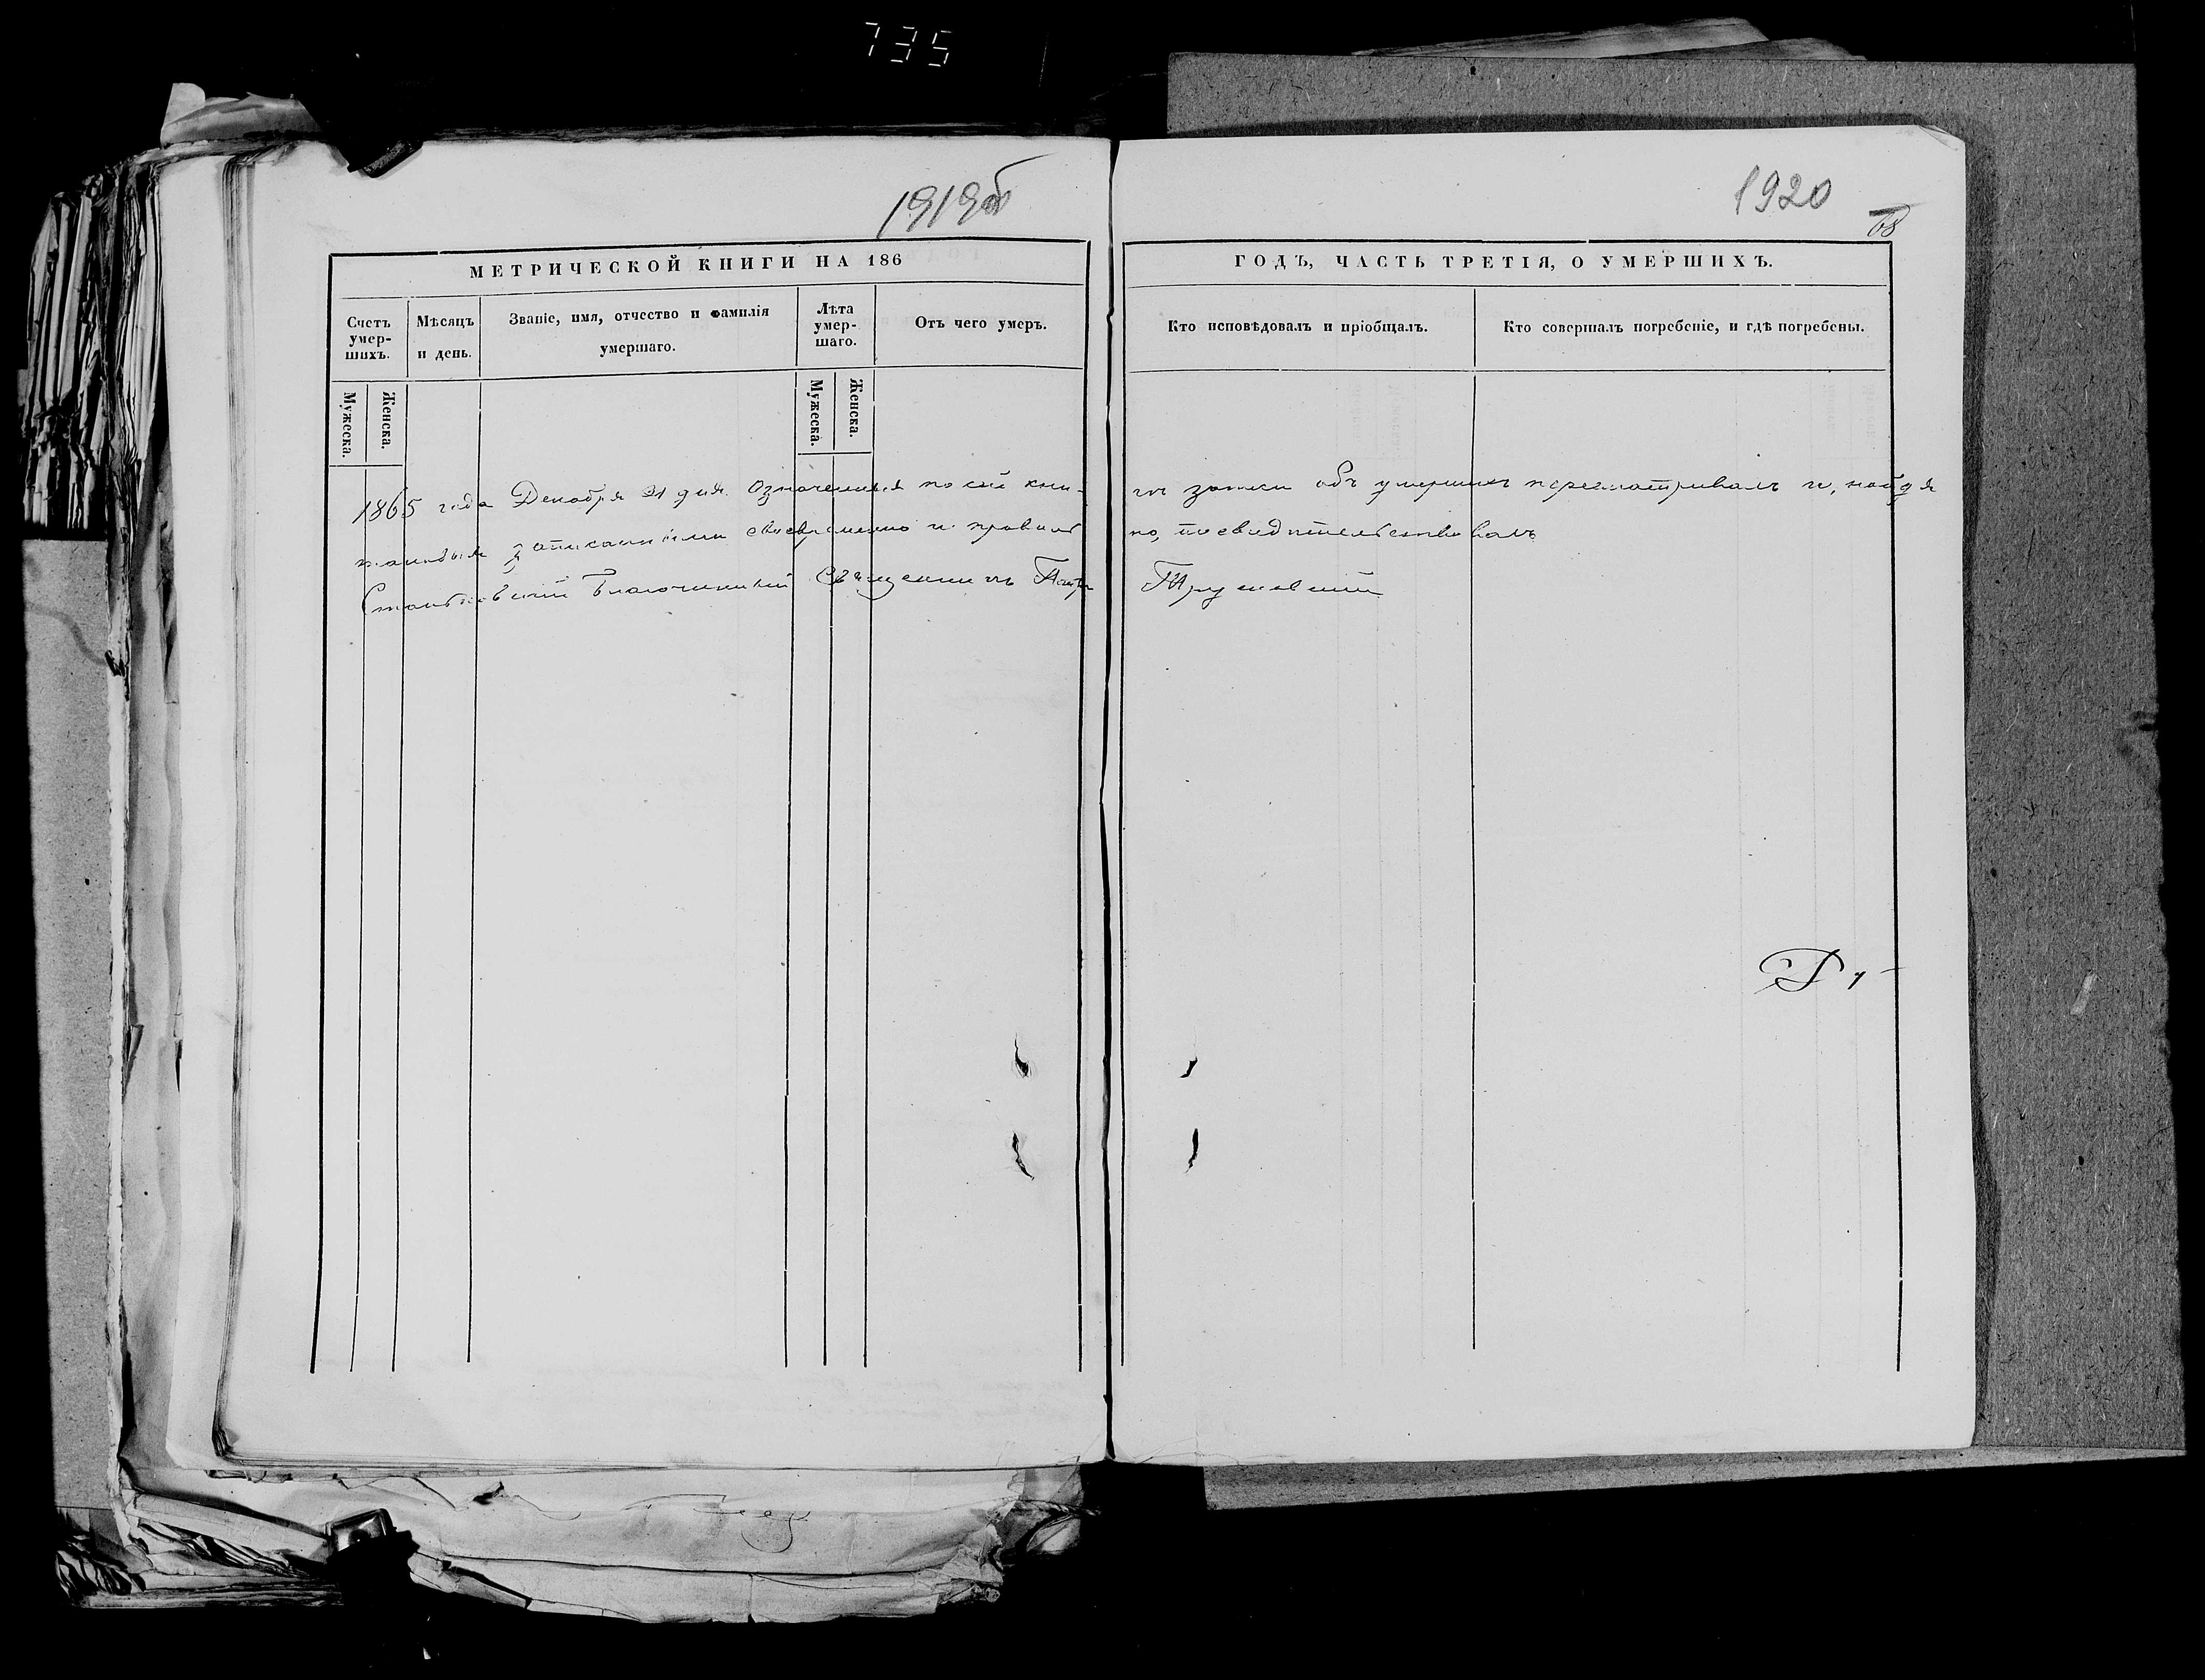 735
1919об
1920
68
МЕТРИЧЕСКОЙ КНИГИ НА 186
ГОДЪ, ЧАСТЬ ТРЕТІЯ, О УМЕРШИХЪ.
Счетъ умер-шихъ.
Мѣсяцъ и день.
Званіе, имя, отчество и фамилія умершаго.
Лѣта умер-шаго.
Отъ чего умеръ.
Кто исповѣдовалъ и пріобщалъ.
Кто совершалъ погребеніе, и гдѣ погребены.
Мужеска.
Женска.
Мужеска.
Женска.
1865 года Декабря 31 дня. Означенныя по сей кни- гѣ записи объ умершихъ пересматривалъ и, найдя
таковыя записанными своевременно и правиль но, посвидѣтельствовалъ
Благочинный Священникъ Петръ